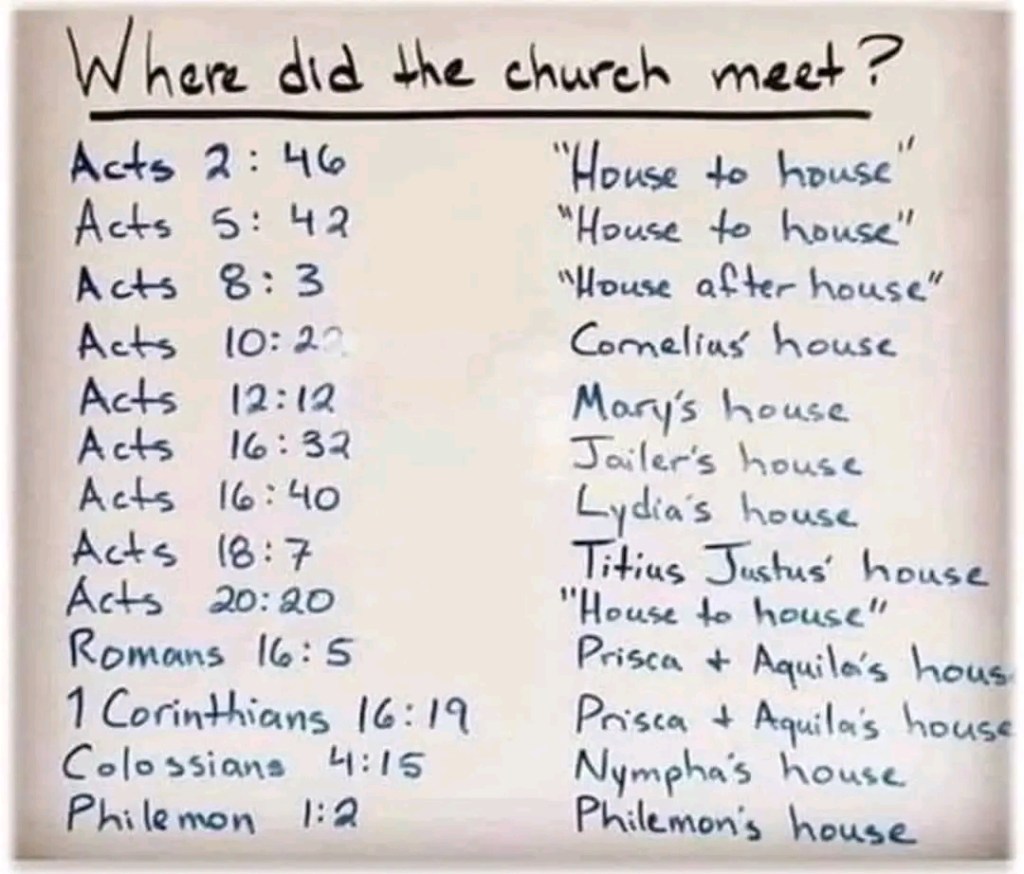 Where did the church meet?
Acts 2:46 "House to house"
Acts 5:42 "House to house"
Acts 8:3 "House after house"
Acts 10:22 Cornelius' house
Acts 12:12 Mary's house
Acts 16:32 Jailer's house
Acts 16:40 Lydia's house
Acts 18:7 Titius Justus' house
Acts 20:20 "House to house"
Romans 16:5 Prisca + Aquila's hous
1 Corinthians 16:19 Prisca + Aquila's house
Colossians 4:15 Nympha's house
Philemon 1:2 Philemon's house